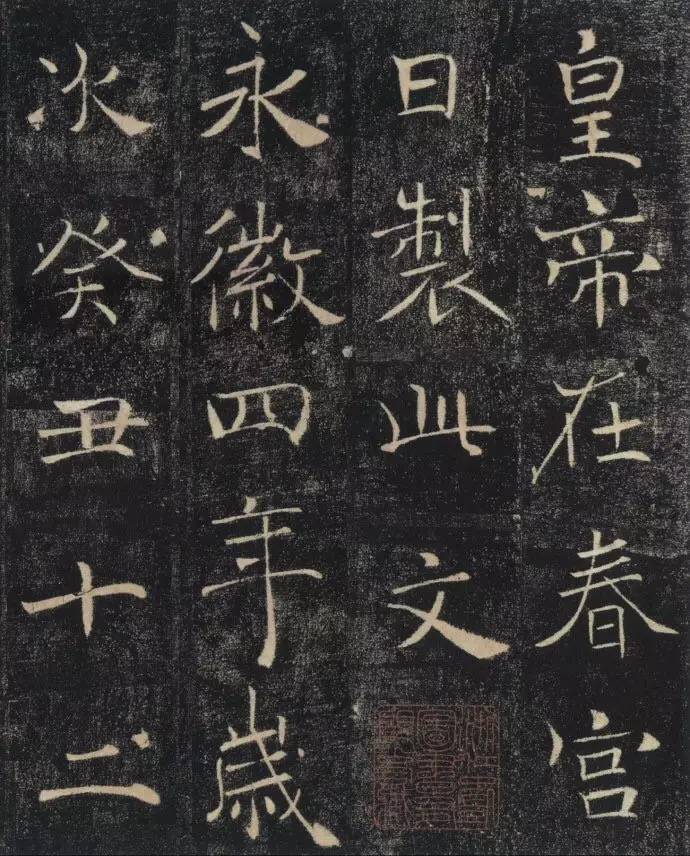 皇帝在春宮
日製此文
永徽四年歲
次癸丑十二